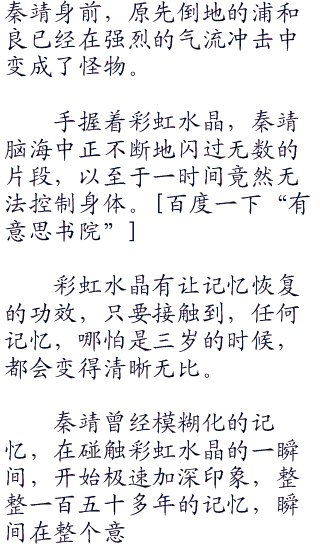 秦靖身前，原先倒地的浦和
良已经在强烈的气流冲击中
变成了怪物。
手握着彩虹水晶，秦靖
脑海中正不断地闪过无数的
片段，以至于一时间竟然无
法控制身体。[百度一下“有
意思书院”]
彩虹水晶有让记忆恢复
的功效，只要接触到，任何
记忆，哪怕是三岁的时候，
都会变得清晰无比。
秦靖曾经模糊化的记
忆，在碰触彩虹水晶的一瞬
间，开始极速加深印象，整
整一百五十多年的记忆，瞬
间在整个意